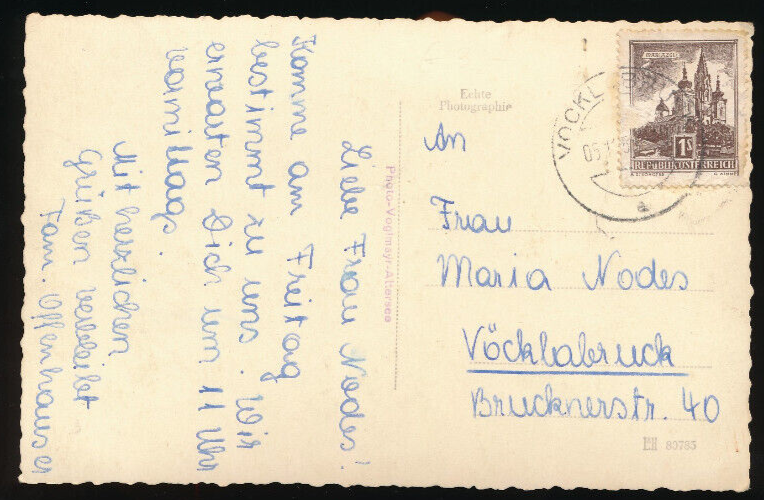 Liebe Frau Nodes!
Komme am Freitag
bestimmt zu uns. Wir
erwarten Dich um 11 Uhr
vormittags.
Mit herzlichen
Grüßen verbleibt
Fam. Offenhauser
Photo-Vogmayr-Attersee
Echte
Photographie
An
Frau
Maria Nodes
Vöcklabruck
Brucknerstr. 40
EH 83785
MARIAZELL
1 S
REPUBLIK ÖSTERREICH
VÖCKL